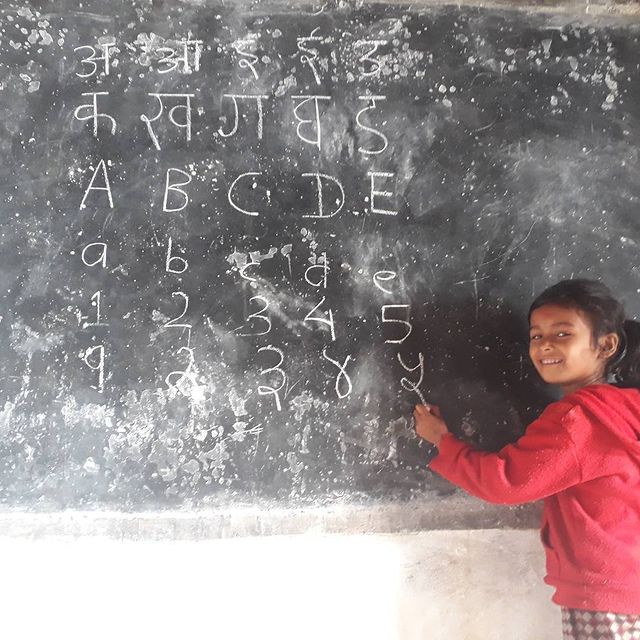 अ आ इ ई उ
क ख ग घ ङ
A B C D E
a b c d e
1 2 3 4 5
१ २ ३ ४ ५